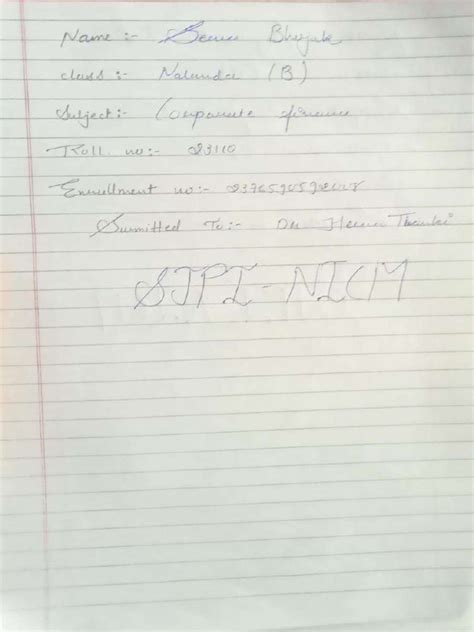 Name :- Bhujak
Class :- Nalanda (B)
Subject :- Corporate finance
Roll no :- 23110
Enrollment no :-
Submitted To :- Dr Heena Thanki
SJPI-NICM